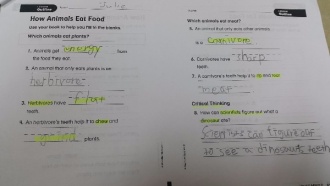 Outline
How Animals Eat Food
Use your book to help you fill in the blanks.
Which animals eat plants?
1. Animals get energy from
the food they eat.
2. An animal that only eats plants is an
herbivore.
3. Herbivores have flat
teeth.
4. An herbivore's teeth help it to chew and
grind plants.
Outline
Which animals eat meat?
5. An animal that only eats other animals
is a carnivore
6. Carnivores have sharp
teeth.
7. A carnivore's teeth help it to rip and tear
meat.
Critical Thinking
8. How can scientists figure out what a
dinosaur ate?
Scientists can figure out
to see a dinosaurs teeth